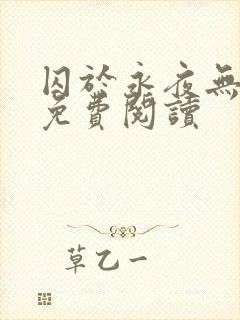 囚於永夜無
免費閱讀
草乙一